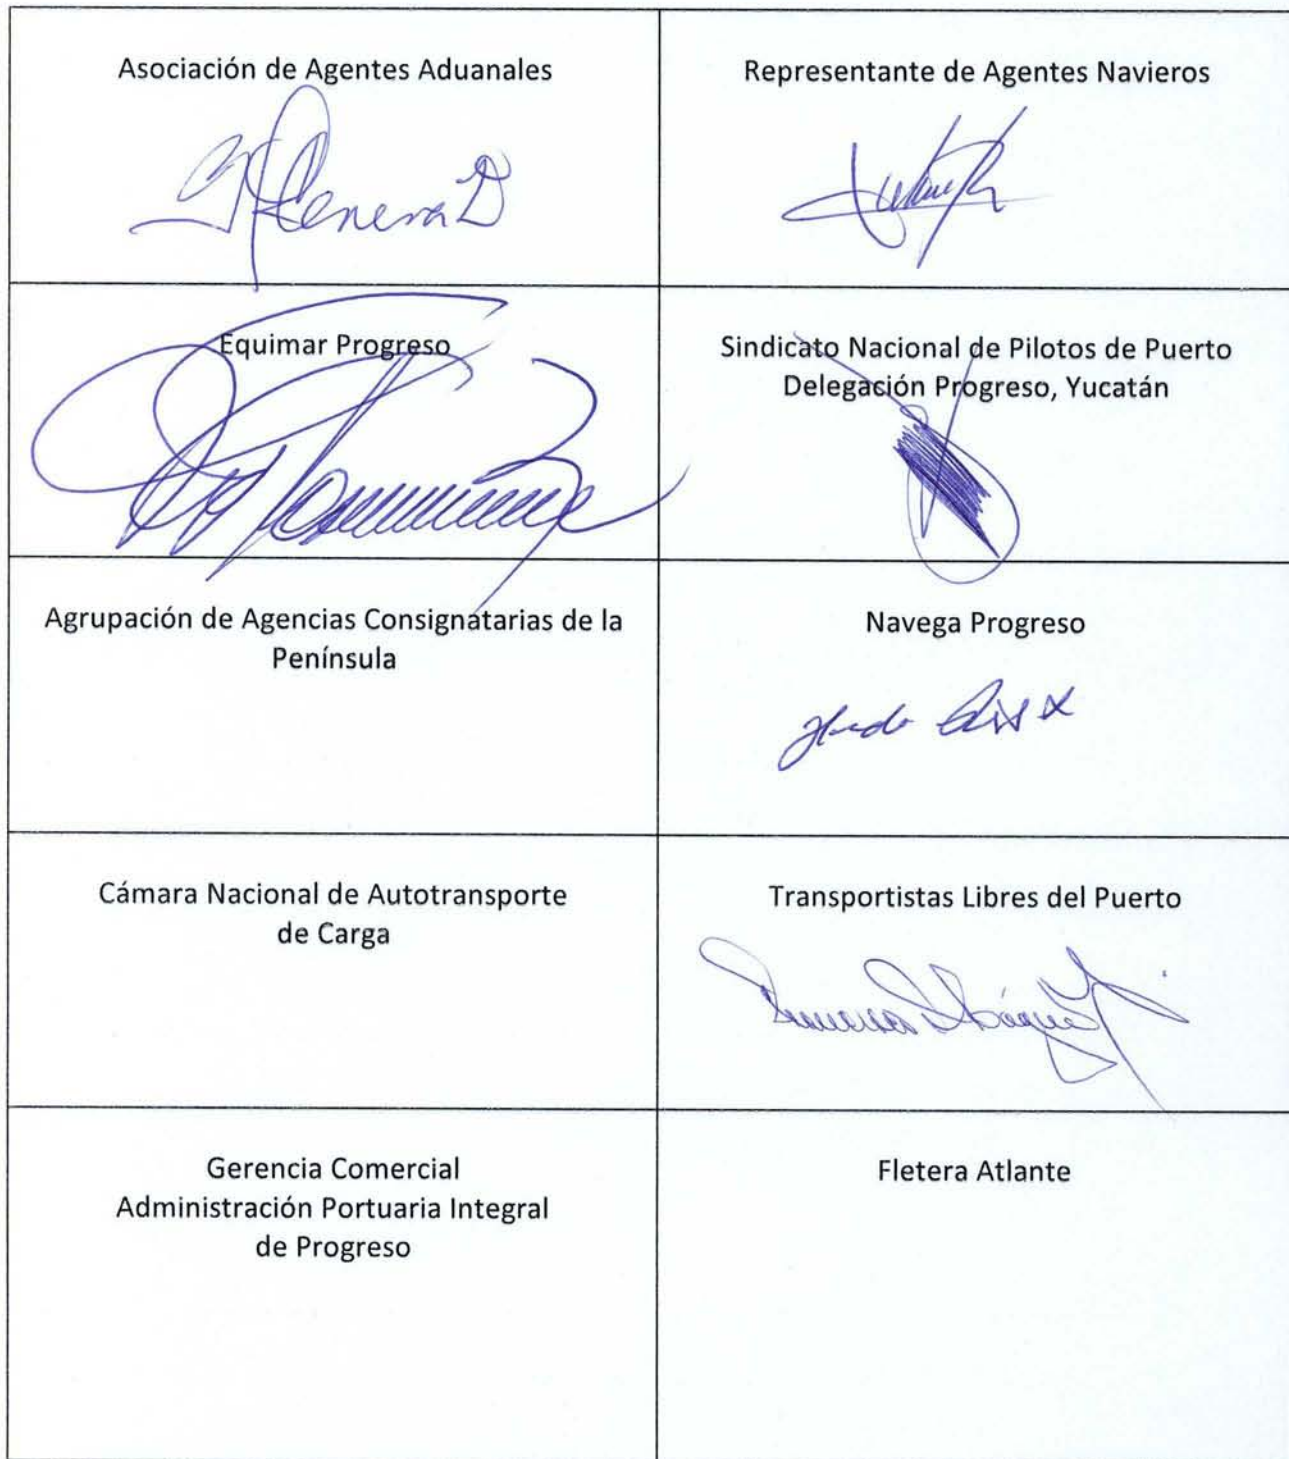 Asociación de Agentes Aduanales
Representante de Agentes Navieros
Equimar Progreso
Sindicato Nacional de Pilotos de Puerto
Delegación Progreso, Yucatán
Agrupación de Agencias Consignatarias de la
Península
Navega Progreso
Cámara Nacional de Autotransporte
de Carga
Transportistas Libres del Puerto
Gerencia Comercial
Administración Portuaria Integral
de Progreso
Fletera Atlante